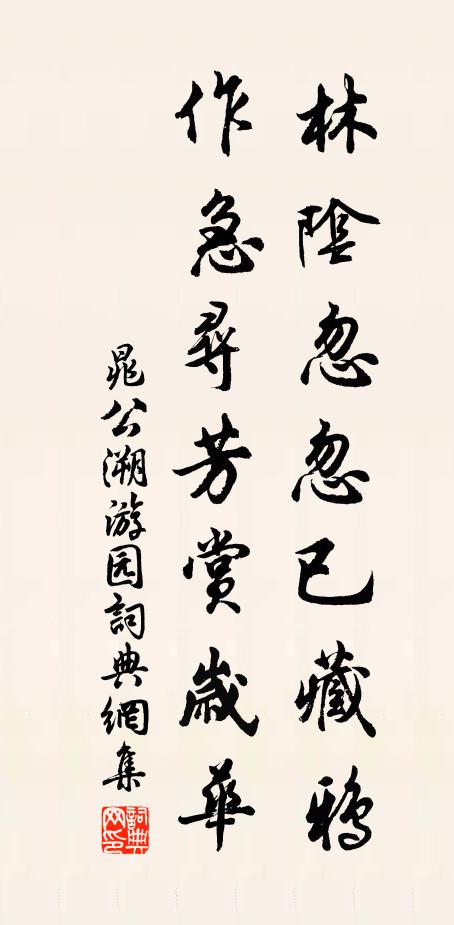 林陰忽忽已藏鴉
作急尋芳賞歲華
晁公溯游园詞典網集
詞典网印